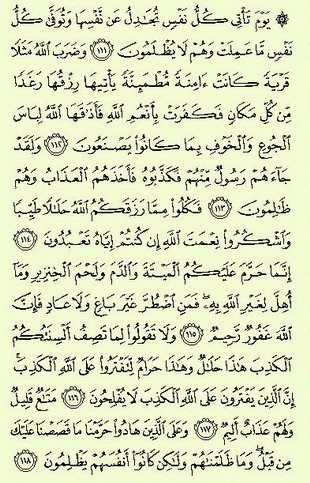 ۞ يَوْمَ تَأْتِي كُلُّ نَفْسٍ تُجَادِلُ عَن نَّفْسِهَا وَتُوَفَّىٰ كُلُّ
نَفْسٍ مَّا عَمِلَتْ وَهُمْ لَا يُظْلَمُونَ ﴿١١١﴾ وَضَرَبَ اللَّهُ مَثَلًا
قَرْيَةً كَانَتْ ءَامِنَةً مُّطْمَئِنَّةً يَأْتِيهَا رِزْقُهَا رَغَدًا
مِّن كُلِّ مَكَانٍ فَكَفَرَتْ بِأَنْعُمِ اللَّهِ فَأَذَاقَهَا اللَّهُ لِبَاسَ
الْجُوعِ وَالْخَوْفِ بِمَا كَانُوا يَصْنَعُونَ ﴿١١٢﴾ وَلَقَدْ
جَاءَهُمْ رَسُولٌ مِّنْهُمْ فَكَذَّبُوهُ فَأَخَذَهُمُ الْعَذَابُ وَهُمْ
ظَالِمُونَ ﴿١١٣﴾ فَكُلُوا مِمَّا رَزَقَكُمُ اللَّهُ حَلَالًا طَيِّبًا
وَاشْكُرُوا نِعْمَتَ اللَّهِ إِن كُنتُمْ إِيَّاهُ تَعْبُدُونَ ﴿١١٤﴾
إِنَّمَا حَرَّمَ عَلَيْكُمُ الْمَيْتَةَ وَالدَّمَ وَلَحْمَ الْخِنزِيرِ وَمَا
أُهِلَّ لِغَيْرِ اللَّهِ بِهِ فَمَنِ اضْطُرَّ غَيْرَ بَاغٍ وَلَا عَادٍ فَإِنَّ
اللَّهَ غَفُورٌ رَّحِيمٌ ﴿١١٥﴾ وَلَا تَقُولُوا لِمَا تَصِفُ أَلْسِنَتُكُمُ
الْكَذِبَ هَٰذَا حَلَالٌ وَهَٰذَا حَرَامٌ لِّتَفْتَرُوا عَلَى اللَّهِ الْكَذِبَ ۚ
إِنَّ الَّذِينَ يَفْتَرُونَ عَلَى اللَّهِ الْكَذِبَ لَا يُفْلِحُونَ ﴿١١٦﴾ مَتَاعٌ قَلِيلٌ
وَلَهُمْ عَذَابٌ أَلِيمٌ ﴿١١٧﴾ وَعَلَى الَّذِينَ هَادُوا حَرَّمْنَا مَا قَصَصْنَا عَلَيْكَ
مِن قَبْلُ ۖ وَمَا ظَلَمْنَاهُمْ وَلَٰكِن كَانُوا أَنفُسَهُمْ يَظْلِمُونَ ﴿١١٨﴾